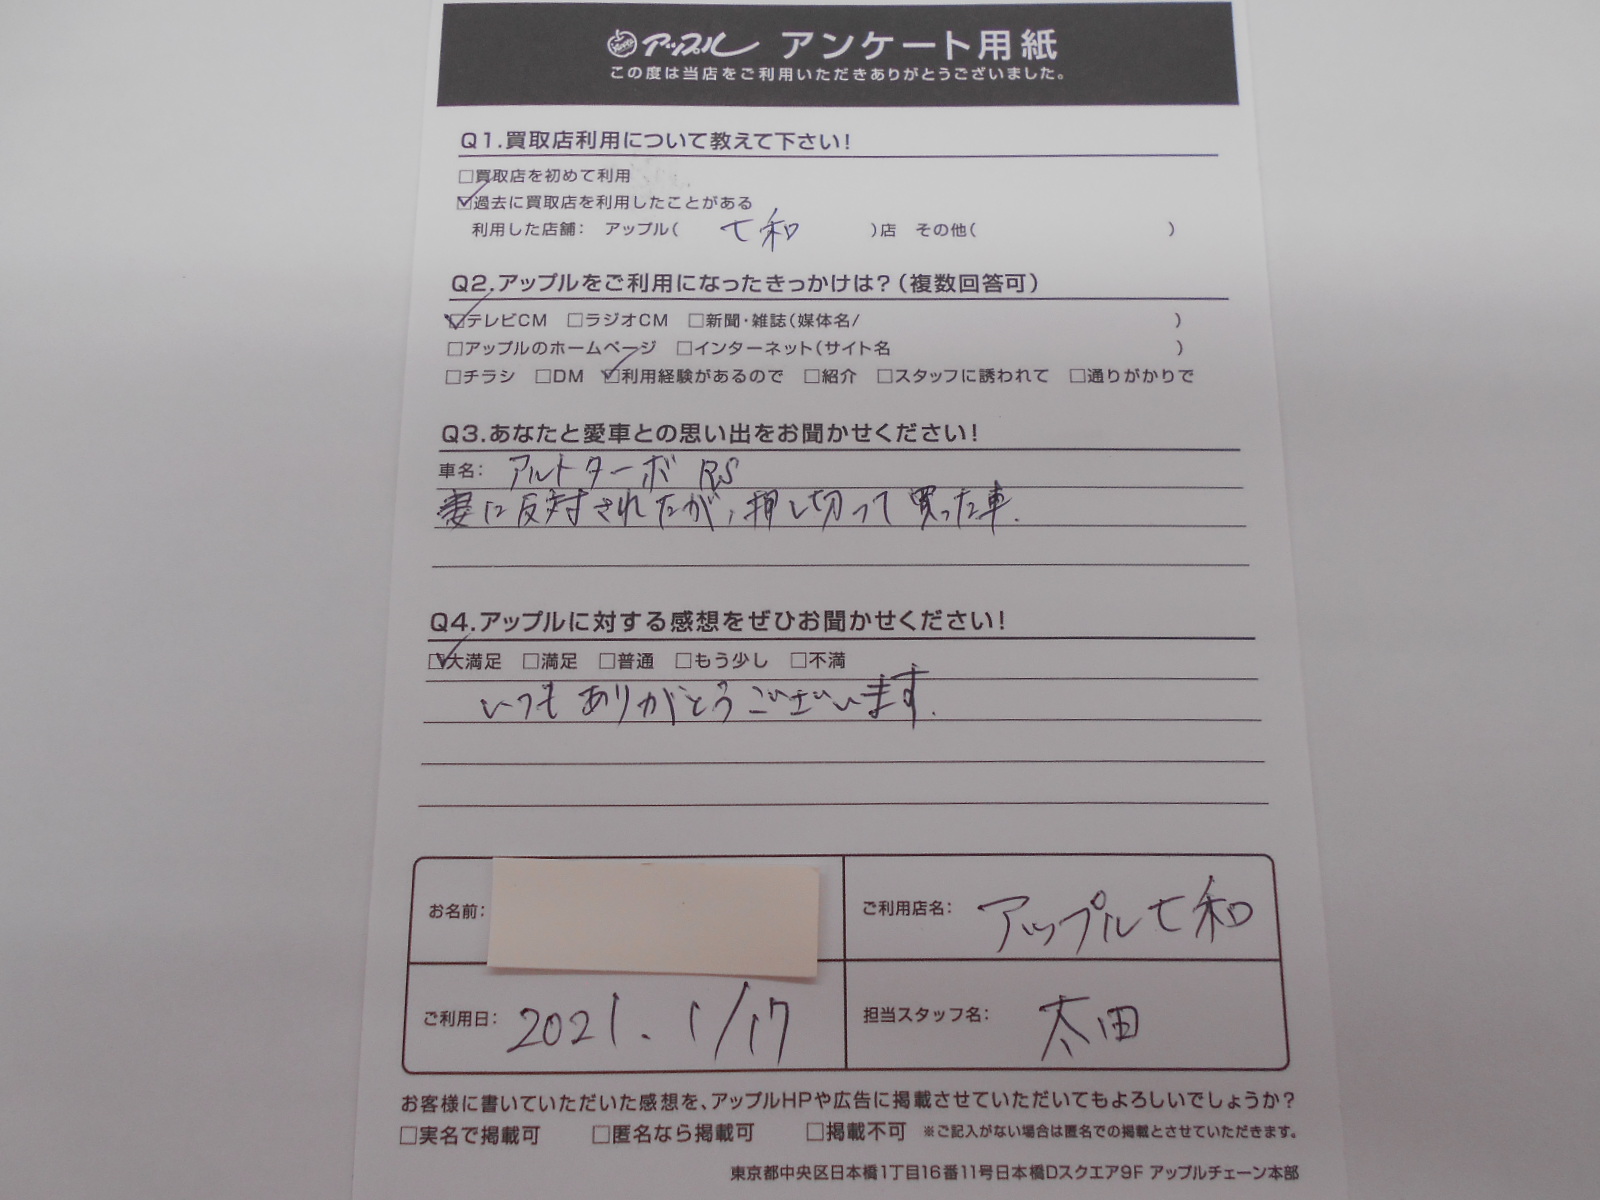 アップル アンケート用紙
この度は当店をご利用いただきありがとうございました。
Q1.買取店利用について教えて下さい!
□買取店を初めて利用
☑過去に買取店を利用したことがある
利用した店舗: アップル( 七和 )店 その他( )
Q2.アップルをご利用になったきっかけは?(複数回答可)
☑テレビCM □ラジオCM □新聞・雑誌(媒体名/ )
□アップルのホームページ □インターネット(サイト名 )
□チラシ □DM ☑利用経験があるので □紹介 □スタッフに誘われて □通りがかりで
Q3.あなたと愛車との思い出をお聞かせください!
車名: アルトターボ RS
妻に反対されたが、押し切って買った車.
Q4.アップルに対する感想をぜひお聞かせください!
☑大満足 □満足 □普通 □もう少し □不満
いつもありがとうございます.
お名前:
ご利用店名: アップル七和
ご利用日: 2021. 1/17
担当スタッフ名: 太田
お客様に書いていただいた感想を、アップルHPや広告に掲載させていただいてもよろしいでしょうか?
□実名で掲載可 □匿名なら掲載可 □掲載不可 ※ご記入がない場合は匿名での掲載とさせていただきます。
東京都中央区日本橋1丁目16番11号日本橋Dスクエア9F アップルチェーン本部